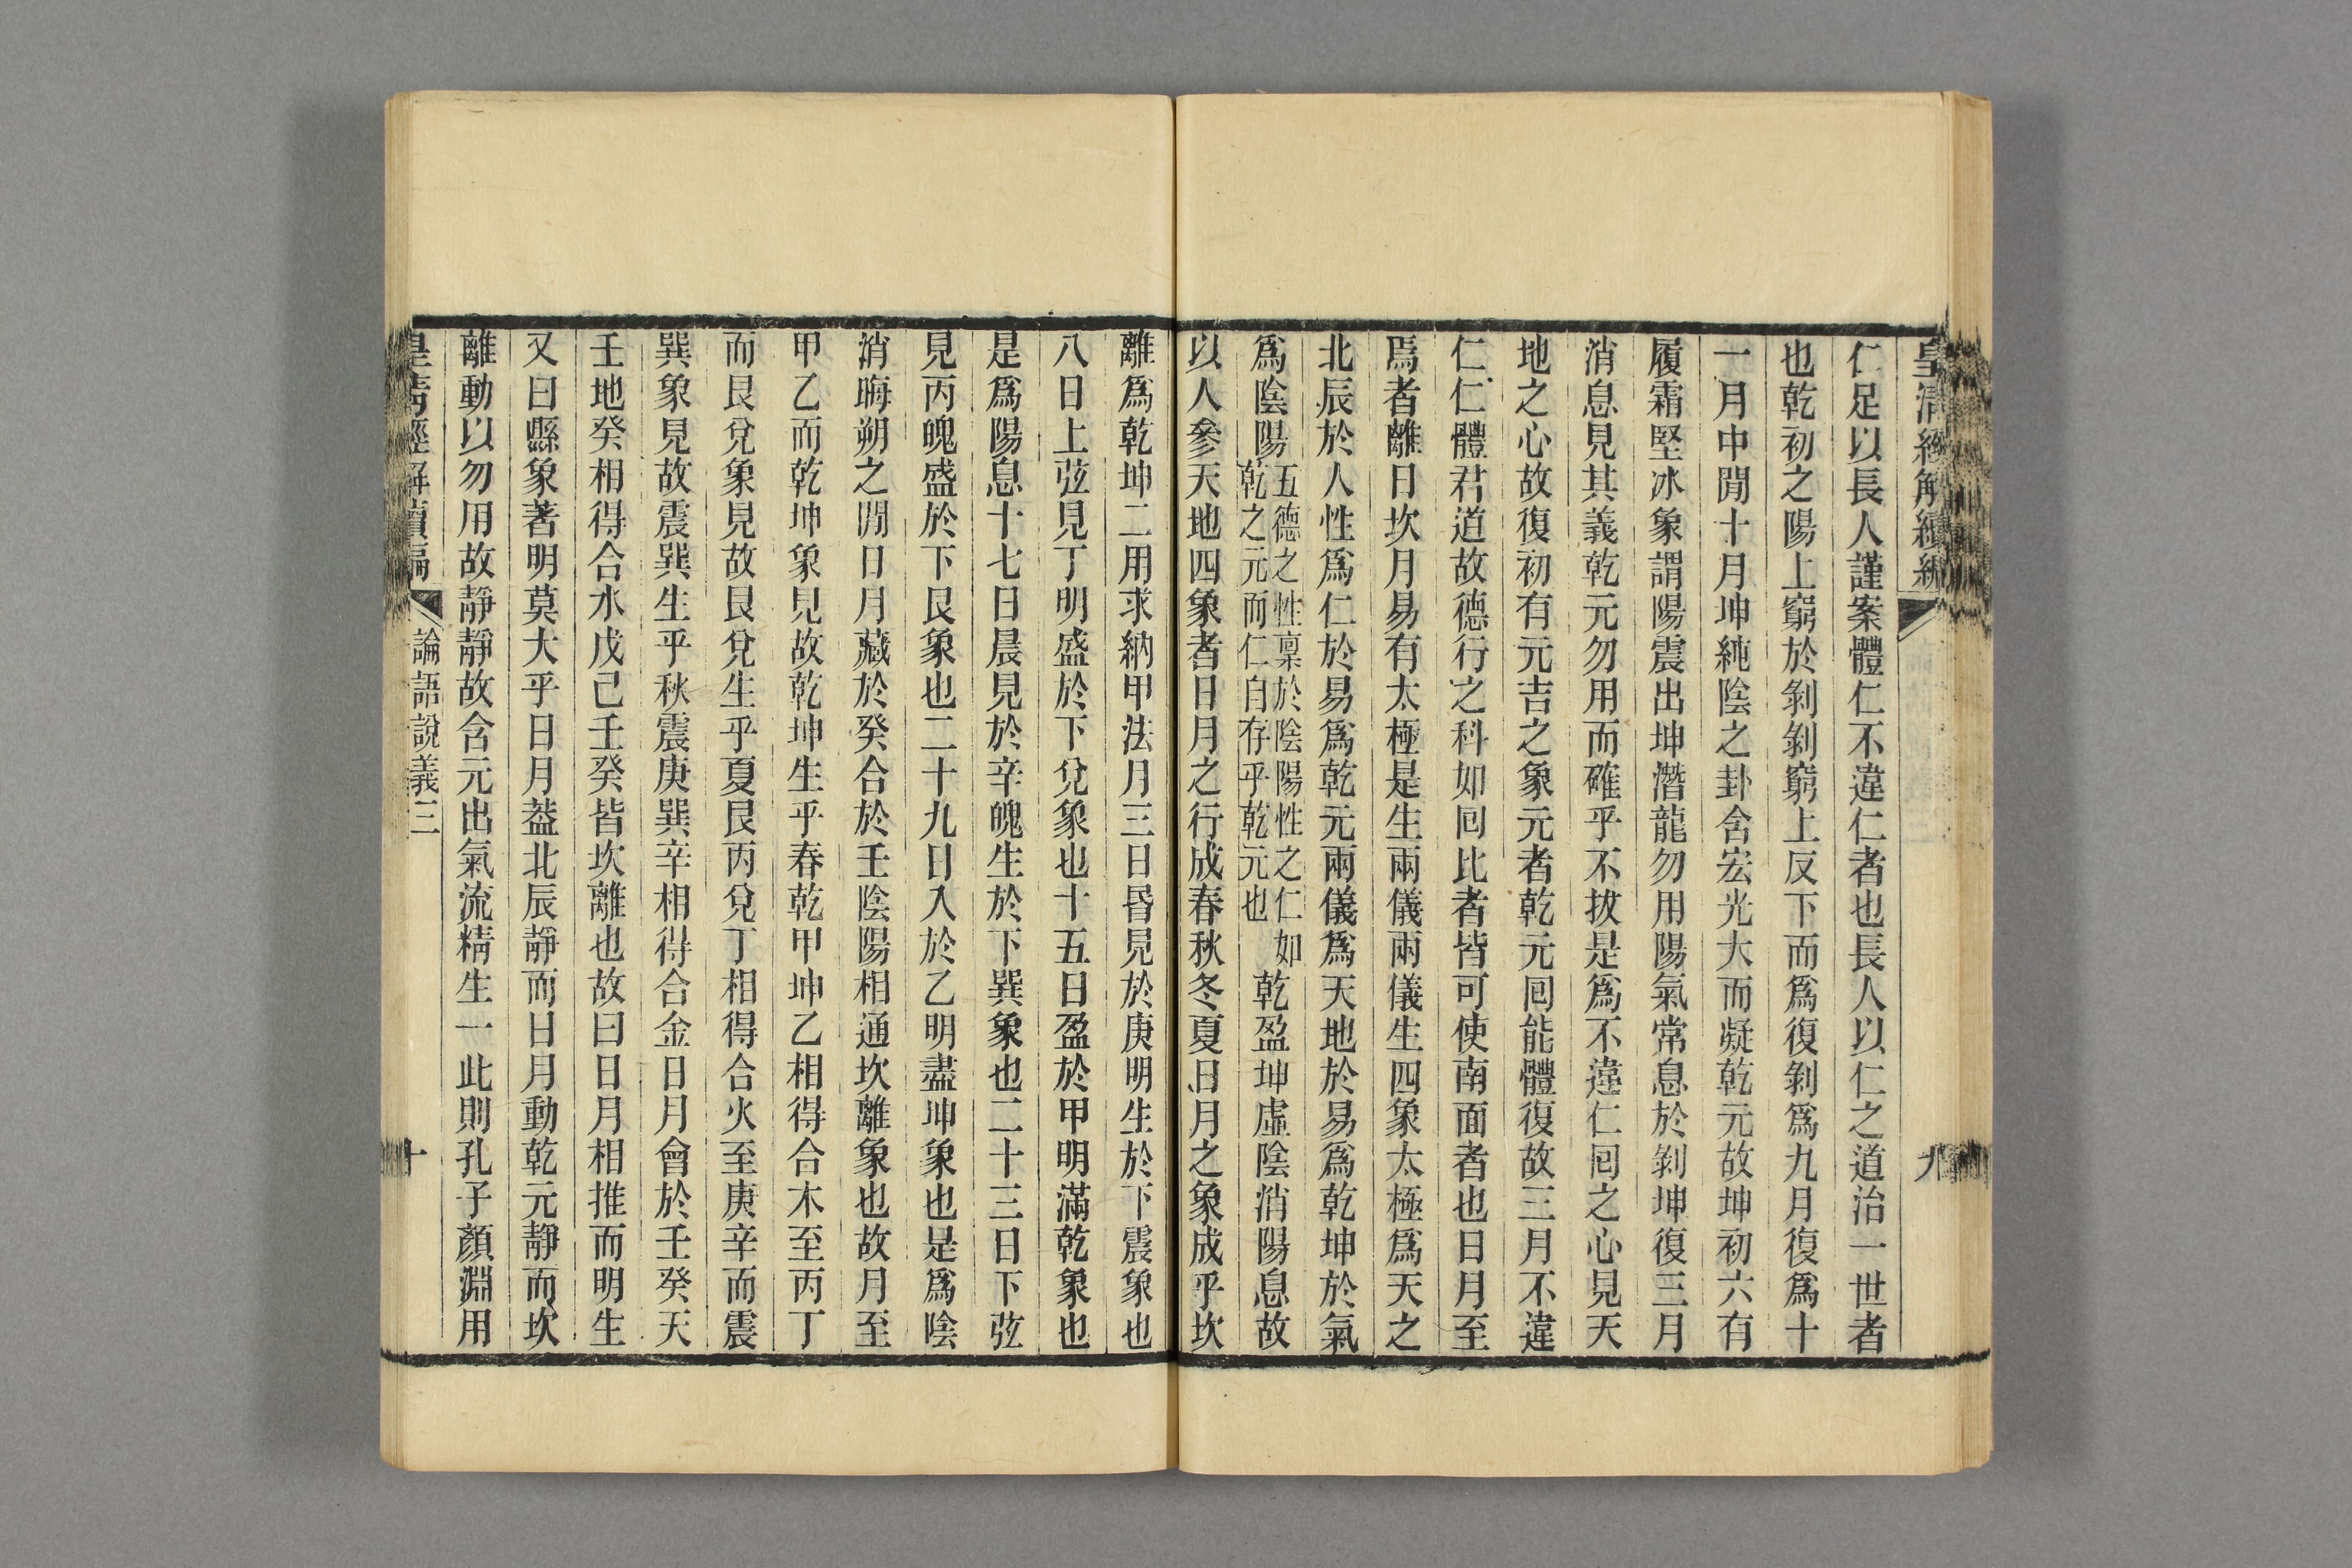 皇清經解續編
九
仁足以長人謹案體仁不違仁者也長人以仁之道治一世者
也乾初之陽上窮於剝剝窮上反下而爲復剝爲九月復爲十
一月中閒十月坤純陰之卦含宏光大而凝乾元故坤初六有
履霜堅冰象謂陽震出坤潛龍勿用陽氣常息於剝坤復三月
消息見其義乾元勿用而確乎不拔是爲不違仁回之心見天
地之心故復初有元吉之象元者乾元回能體復故三月不違
仁仁體君道故德行之科如回比者皆可使南面者也日月至
焉者離日坎月易有太極是生兩儀兩儀生四象太極爲天之
北辰於人性爲仁於易爲乾元兩儀爲天地於易爲乾坤於氣
爲陰陽五德之性稟於陰陽性之仁如乾之元而仁自存乎乾元也乾盈坤虛陰消陽息故
以人參天地四象者日月之行成春秋冬夏日月之象成乎坎
離爲乾坤二用求納甲法月三日昏見於庚明生於下震象也
八日上弦見丁明盛於下兌象也十五日盈於甲明滿乾象也
是爲陽息十七日晨見於辛魄生於下巽象也二十三日下弦
見丙魄盛於下艮象也二十九日入於乙明盡坤象也是爲陰
消晦朔之閒日月藏於癸合於壬陰陽相通坎離象也故月至
甲乙而乾坤象見故乾坤生乎春乾甲坤乙相得合木至丙丁
而艮兌象見故艮兌生乎夏艮丙兌丁相得合火至庚辛而震
巽象見故震巽生乎秋震庚巽辛相得合金日月會於壬癸天
壬地癸相得合水戊己壬癸皆坎離也故曰日月相推而明生
又曰縣象著明莫大乎日月葢北辰靜而日月動乾元靜而坎
離動以勿用故靜靜故含元出氣流精生一此則孔子顏淵用
皇清經解續編
論語說義三
十